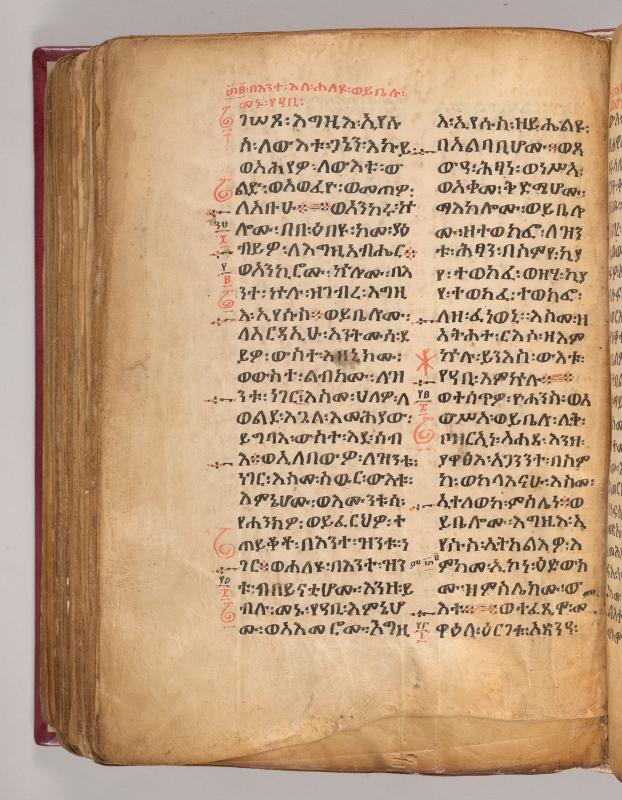 ፳፪፡በእንተ፡እለ፡ሐለዩ፡ወይቤሉ፡
መኑ፡የዓቢ፡
ገሠጾ፡እግዚእ፡ኢየሱ
ስ፡ለውእቱ፡ጋኔን፡እኩይ
ወአሕየዎ፡ለውእቱ፡ወ
ልድ፡ወአወፈዮ፡ወመጠዎ፡
ለአቡሁ፡ወአንከሩ፡ኵ
ሎሙ፡በበ፡ዕበዩ፡ከመ፡ያዕ
ብይዎ፡ለእግዚአብሔር፡
ወአንኪሮሙ፡ኵሎሙ፡በእ
ንተ፡ኵሉ፡ዘገብረ፡እግዚ
እ፡ኢየሱስ፡ወይቤሎሙ፡
ለአርዳኢሁ፡አንትሙሰ፡ደ
ይዎ፡ውስተ፡እዘኒክሙ፡
ወውስተ፡ልብክሙ፡ለዝ
ንቱ፡ነገር፡እስመ፡ሀለዎ፡ለ
ወልደ፡እጓለ፡እመሕያው፡
ይግባእ፡ውስተ፡እደ፡ሰብ
እ፡ወኢለበውዎ፡ለዝንቱ፡
ነገር፡እስመ፡ስዉር፡ውእቱ፡
እምኔሆሙ፡ወእሙንቱሰ፡
የሐንክዎ፡ወይፈርህዎ፡ተ
ጠይቆቶ፡በእንተ፡ዝንቱ፡ነ
ገር፡ወሐለዩ፡በእንተ፡ዝን
ቱ፡በበይናቲሆሙ፡እንዘ፡ይ
ብሉ፡መኑ፡የዓቢ፡እምኔሆ
ሙ፡ወአእመሮሙ፡እግዚ
እ፡ኢየሱስ፡ዘይሔልዩ፡
በአልባቢሆሙ፡ወጸ
ውዓ፡ሕፃነ፡ወነሥአ፡
ወአቀመ፡ቅድሜሆሙ፡
ማእከሎሙ፡ወይቤሎ
ሙ፡ዘተወክፈ፡ለዝን
ቱ፡ሕፃን፡በስምየ፡ኪያ
የ፡ተወክፈ፡ወዘሂ፡ኪያ
የ፡ተወክፈ፡ተወክፎ፡
ለዘ፡ፈነወኒ፡እስመ፡ዘ
አትሐተ፡ርእሶ፡ዘእም
ኵሉ፡ይንእስ፡ውእቱ፡
የዓቢ፡እምኵሉ፡
ወተሰጥዎ፡ዮሐንስ፡ወአ
ውሥአ፡ወይቤሎ፡ሊቅ፡
ቦዘርኢነ፡አሐደ፡እንዘ፡
ያወፅእ፡አጋንንተ፡በስም
ከ፡ወከላእናሁ፡እስመ፡
ኢተለወከ፡ምስሌነ፡ወ
ይቤሎሙ፡እግዚእ፡ኢ
የሱስ፡ኢትክልእዎ፡እ
ስመ፡ዘምስሌክሙ፡ው
እቱ፡ወተፈጺሞ፡መ
ዋዕለ፡ዕርገቱ፡አጽንዓ፡